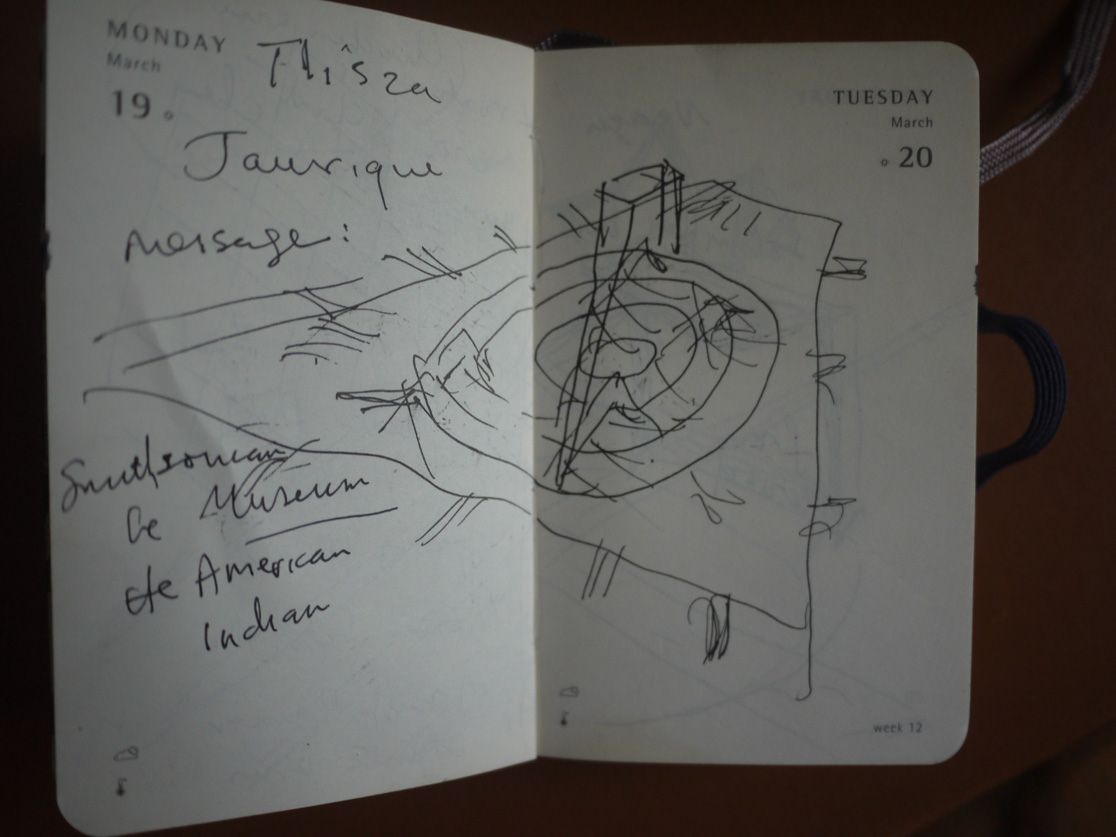 MONDAY
March
19
Jaurique
message:
Smithsonian
Museum
American
Indian
TUESDAY
March
20
week 12